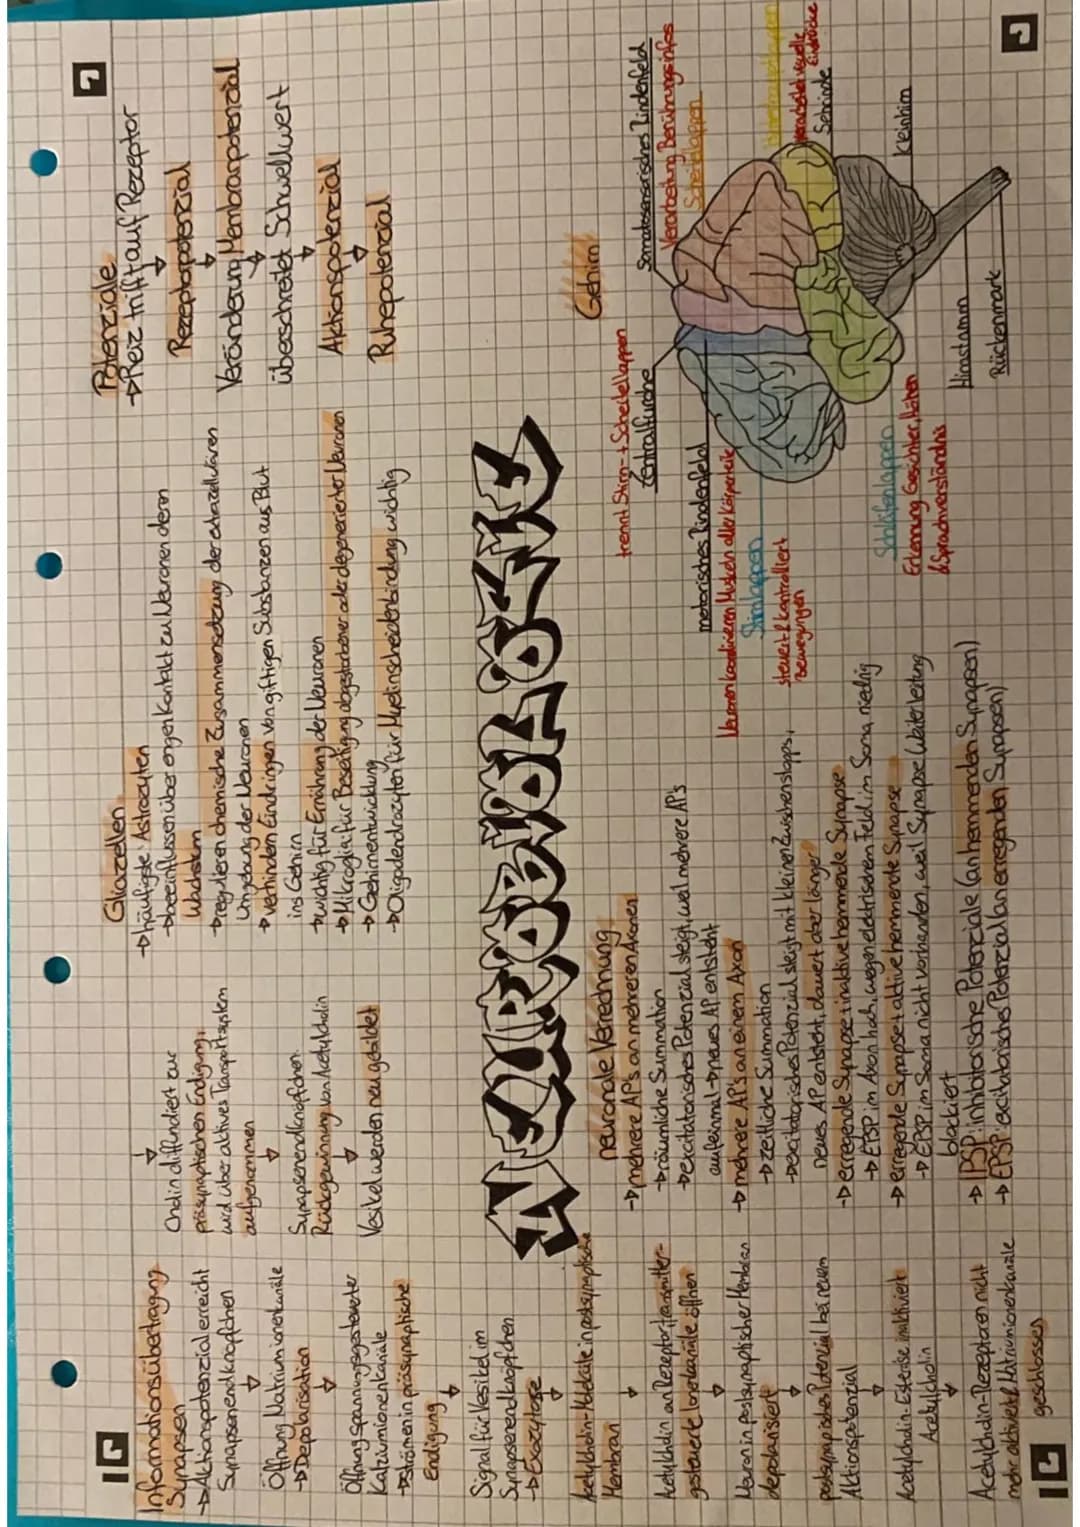 Informationsübertragung
Synapsen
→Aktionspotenzial erreicht
Synapsenendknöpfchen
Öffnung Natriumionenkanäle
→Depolarisation
Öffnung spannungsgesteuerter
Kalziumionenkanäle
→strömen in präsynaptische
Endigung
Signal für Vesikel im
Synapsenendknöpfchen
→Exozytose
Acetylcholin-Moleküle in postsynaptische
Membran
Acetylcholin an Rezeptor, transmitter-
gesteuerte Ionenkanäle öffnen
Neuron in postsynaptischer Membran
depolarisiert
postsynaptisches Potenzial bei neuem
Aktionspotenzial
Acetylcholin-Esterase inaktiviert
Acetylcholin
Acetylcholin-Rezeptoren nicht
mehr aktiviert & Natriumionenkanäle
geschlossen
Cholin diffundiert zur
präsynaptischen Endigung,
wird über aktives Transportsystem
aufgenommen
Synapsenendknöpfchen:
Rückgewinnung von Acetylcholin
Vesikel werden neu gebildet
Gliazellen
→häufigste: Astrozyten
→beeinflussen über engen Kontakt zu Neuronen deren
Wachstum
→regulieren chemische Zusammensetzung der extrazellulären
Umgebung der Neuronen
→verhindern Eindringen von giftigen Substanzen aus Blut
ins Gehirn
→wichtig für Ernährung der Neuronen
→Mikroglia: für Beseitigung abgestorbener oder degenerierter Neuronen
→Gehirnentwicklung
→Oligodendrozyten für Myelinscheidenbindung wichtig
Potenziale
→Reiz trifft auf Rezeptor
Rezeptorpotenzial
Veränderung Membranpotenzial
überschreitet Schwellwert
Aktionspotenzial
Ruhepotenzial
NEUROBIOLOGIE
neuronale Verrechnung
→mehrere AP's an mehreren Axonen
→räumliche Summation
→excitatorisches Potenzial steigt, weil mehrere AP's
aufeinmal →neues AP entsteht
→mehrere AP's an einem Axon
→zeitliche Summation
→excitatorisches Potenzial steigt mit kleinen Zwischenstopps,
neues AP entsteht, dauert aber länger
→erregende Synapse + inaktive hemmende Synapse
→EPSP im Axon hoch, wegen elektrischem Feld im Soma niedrig
→erregende Synapse + aktive hemmende Synapse
→EPSP im Soma nicht vorhanden, weil Synapse Weiterleitung
blockiert
→IPSP: inhibitorische Potenziale (an hemmenden Synapsen)
→EPSP: excitatorisches Potenzial (an erregenden Synapsen)
Gehirn
trennt Stirn- + Scheitellappen
Zentralfurche
Somatosensorisches Rindenfeld
Verarbeitung Berührungsinfos
Scheitellappen
Hinterhauptlappen
verarbeitet visuelle
Eindrücke
Sehrinde
motorisches Rindenfeld
Neuronen koordinieren Muskeln aller Körperteile
Stirnlappen
steuert & kontrolliert
Bewegungen
Schläfenlappen
Erkennung Gesichter, Hören
& Sprachverständnis
Kleinhirn
Hirnstamm
Rückenmark